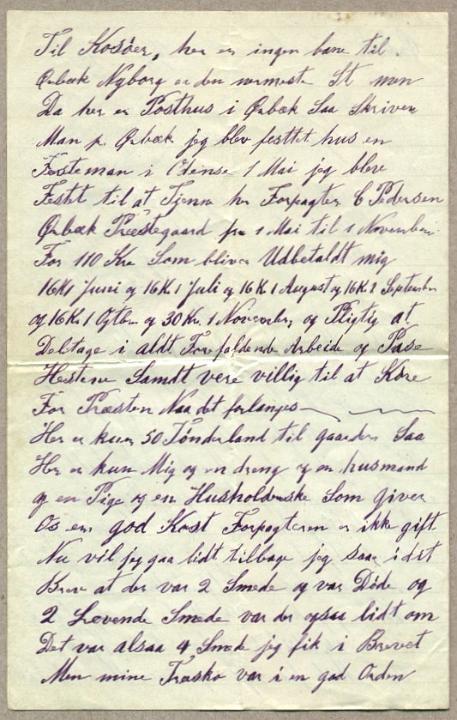 Til Kosøer, her er ingen bane til
Ørbæk Nyborg er den nærmeste St men
Da her er Posthus i Ørbæk Saa Skriver
Man pr Ørbæk jeg blev festtet hus en
Festeman i Odense 1 Mai jeg blev
Festet til at Tjenne hr Forpagter C Pedersen
Ørbæk Præstegaard fra 1 Mai til 1 November
For 110 Kro Som bliver Udbetaldt mig
16 K 1 Juni og 16 K 1 Juli og 16 K 1 August og 16 K 2 September
og 16 K 1 Ogtbr og 30 Kr. 1 November og Pligtig at
Deltage i aldt Forefaldende Arbeide og Passe
Hestene Samdt vere villig til at Køre
For Præsten Naa det forlanges
Her er kuns 50 Tønderland til gaarden Saa
Her er kun Mig og en dreng og en husmand
og en Pige og en Husholderske Som giver
Os en god Kost Forpagteren er ikke gift
Nu vil jeg gaa lidt tilbage jeg saae i dit
Breve at der var 2 Smede og var Døde og
2 Levende Smede var der ogsaa lidt om
Det var alsaa 4 Smede jeg fik i Brevet
Men mine Træsko var i en god Orden